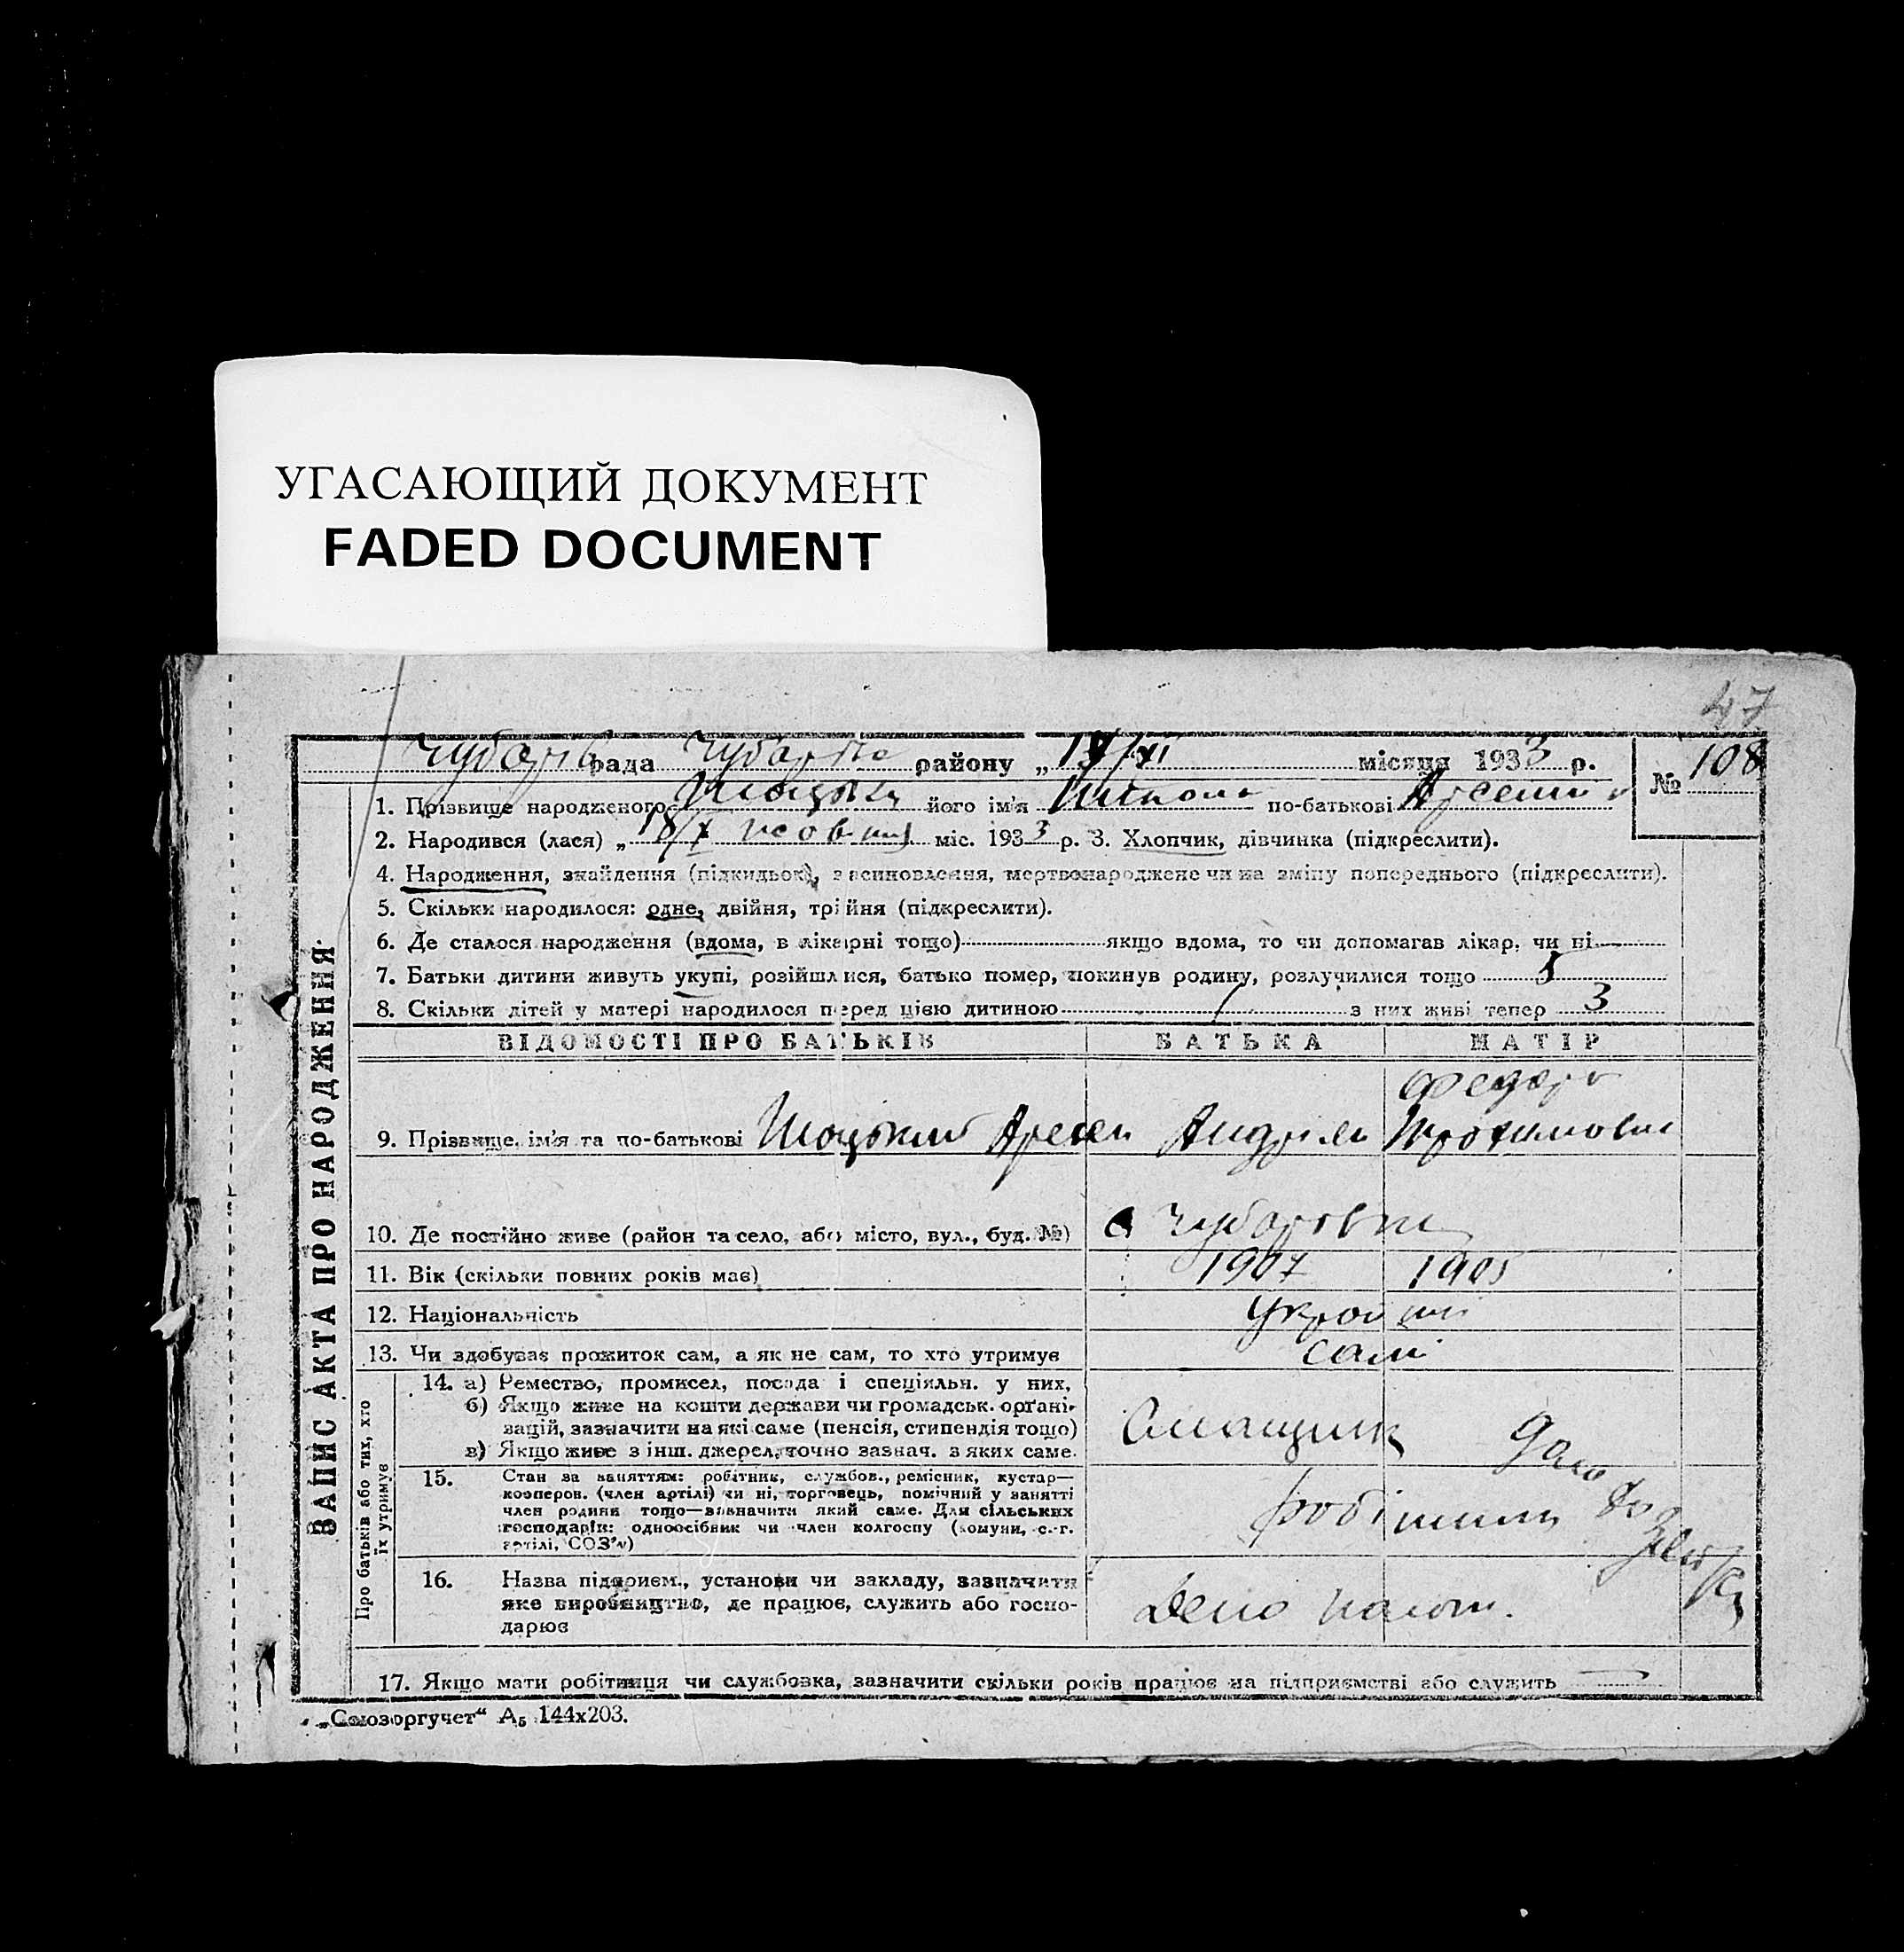 УГАСАЮЩИЙ ДОКУМЕНТ
FADED DOCUMENT
47
рада района „ /XI місяця 1933 р.
№ 108
1. Прізвище народженого його ім'я по-батькові
2. Народився (лася) „18/X жовтня міс. 1933 р. 3. Хлопчик, дівчинка (підкреслити).
4. Народження, знайдення (підкидьок), засиновлення, мертвонароджене чи на зміну попереднього (підкреслити).
5. Скільки народилося: одне, двійня, трійня (підкреслити).
6. Де сталося народження (вдома, в лікарні тощо) якщо вдома, то чи допомагав лікар, чи ні
7. Батьки дитини живуть укупі, розійшлися, батько помер, покинув родину, розлучилися тощо
8. Скільки дітей у матері народилося перед цією дитиною з них живі тепер 3
ЗАПИС АКТА ПРО НАРОДЖЕННЯ
ВІДОМОСТІ ПРО БАТЬКІВ БАТЬКА МАТІР
Федора
9. Прізвище, ім'я та по-батькові Арсен Андріяв Трохимовна
10. Де постійно живе (район та село, або місто, вул., буд. №) с Чубаровка
11. Вік (скільки повних років має) 1907 1905
12. Національність
13. Чи здобуває прожиток сам, а як не сам, то хто утримує самі
Про батьків або тих, хто їх утримує
14. а) Ремество, промисел, посада і спеціяльн. у них,
б) Якщо живе на кошти держави чи громадськ. органі-
зацій, зазначити на які саме (пенсія, стипендія тощо)
в) Якщо живе з інш. джерел, точно зазнач. з яких саме.
Смащик
15. Стан за заняттям: робітник, службов., ремісник, кустар—
кооперов. (член артілі) чи ні, торговець, помічний у занятті
член родини тощо—зазначити який саме. Для сільських
господарів: одноосібник чи член колгоспу (комуни, с.-г.
артілі, СОЗ'у)
16. Назва підприєм., установи чи закладу, зазначити
яке виробництво, де працює, служить або госпо-
дарює
Депо
17. Якщо мати робітниця чи службовка, зазначити скільки років працює на підприємстві або служить
„Союзоргучет“ А5 144х203.